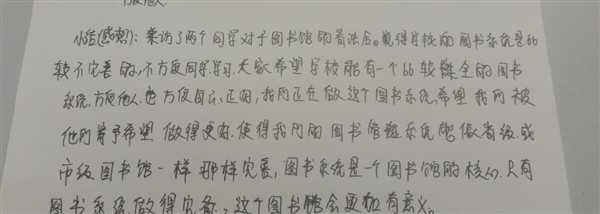 小结(感想): 采访了两个同学对于图书馆的看法后。觉得学校的图书系统是比
较不完善的,不方便同学学习.大家希望学校能有一个比较健全的图书
系统.方便他人.也方便自己.正因,我们正在做这个图书系统,希望我们被
他们寄予希望.做得更好.使得我们的图书馆系统能像省级或
市级图书馆一样那样完善,图书系统是一个图书馆的核心.只有
图书系统做得完备,这个图书馆会更加有意义。